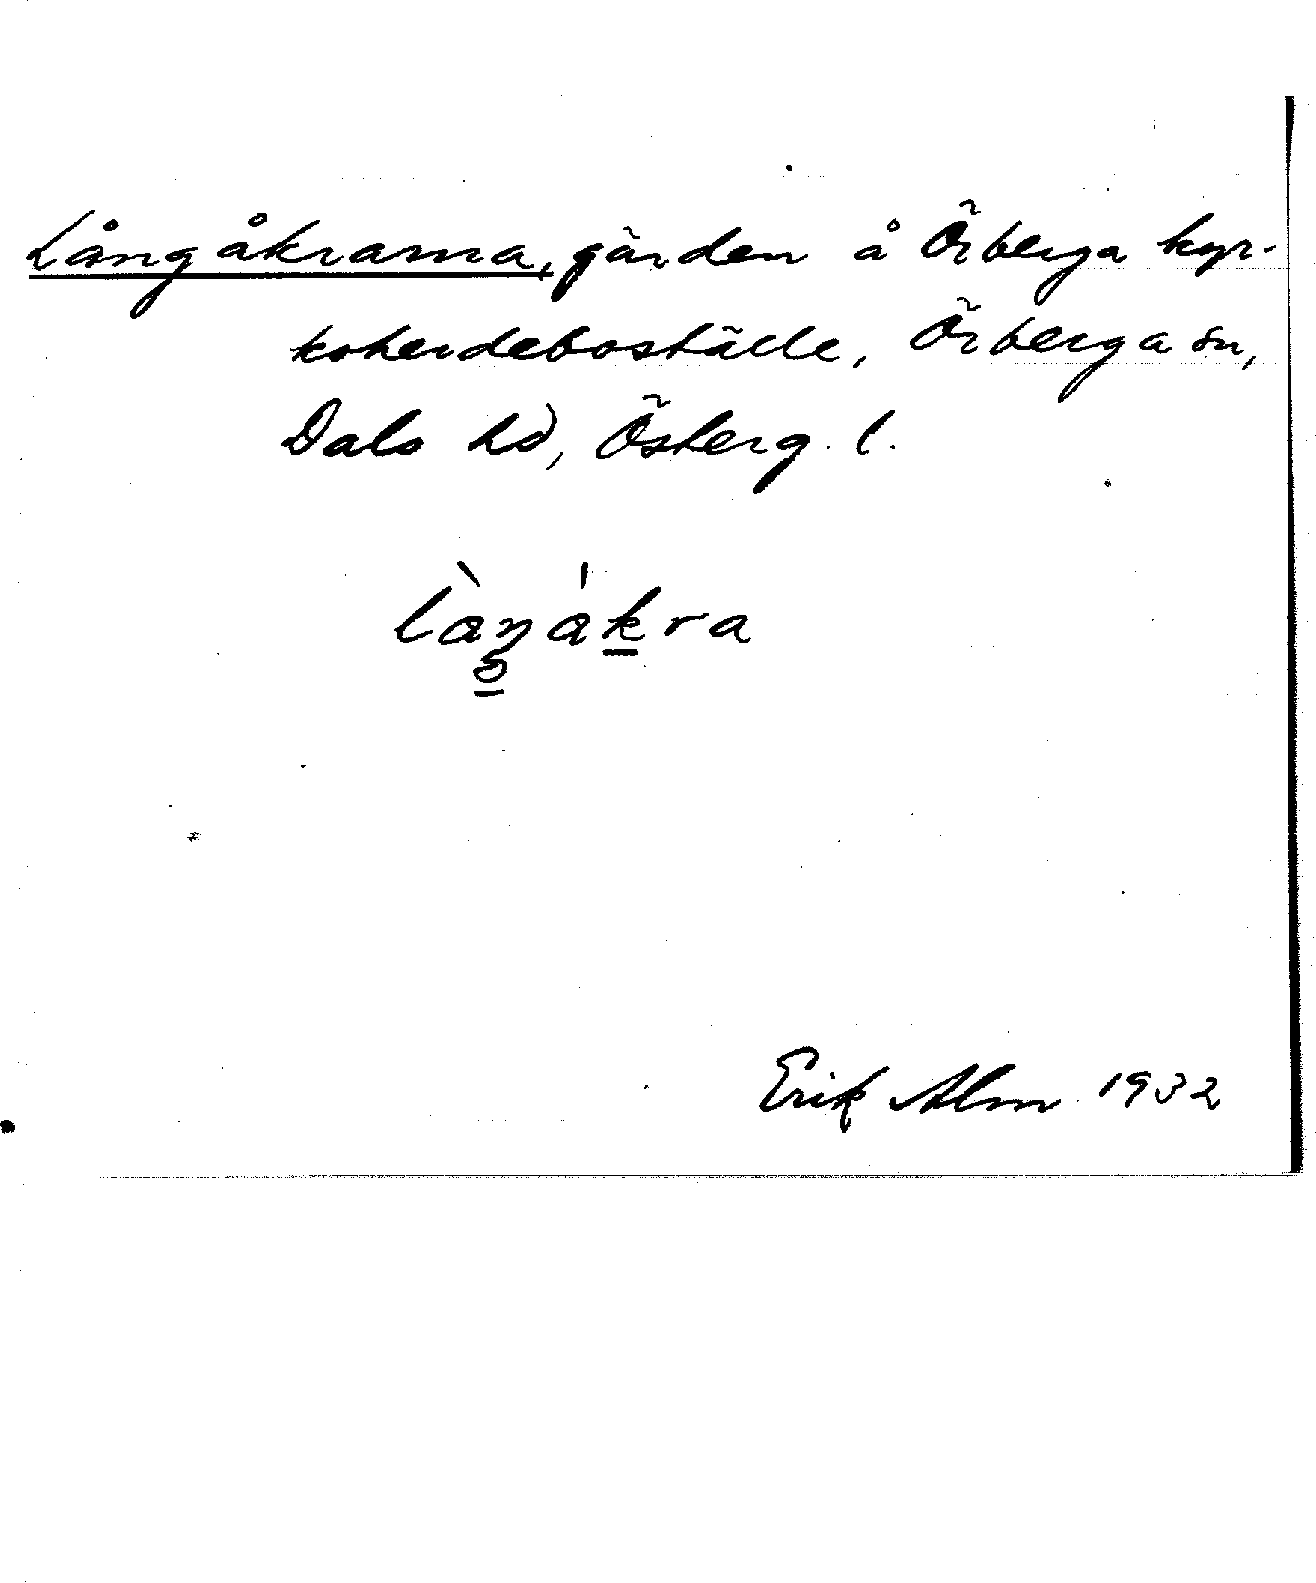 Långåkrarna, gärden å Örberga kyr-
koherdeboställe, Örberga sn,
Dals hd, Österg. l.
Erik Alm 1932